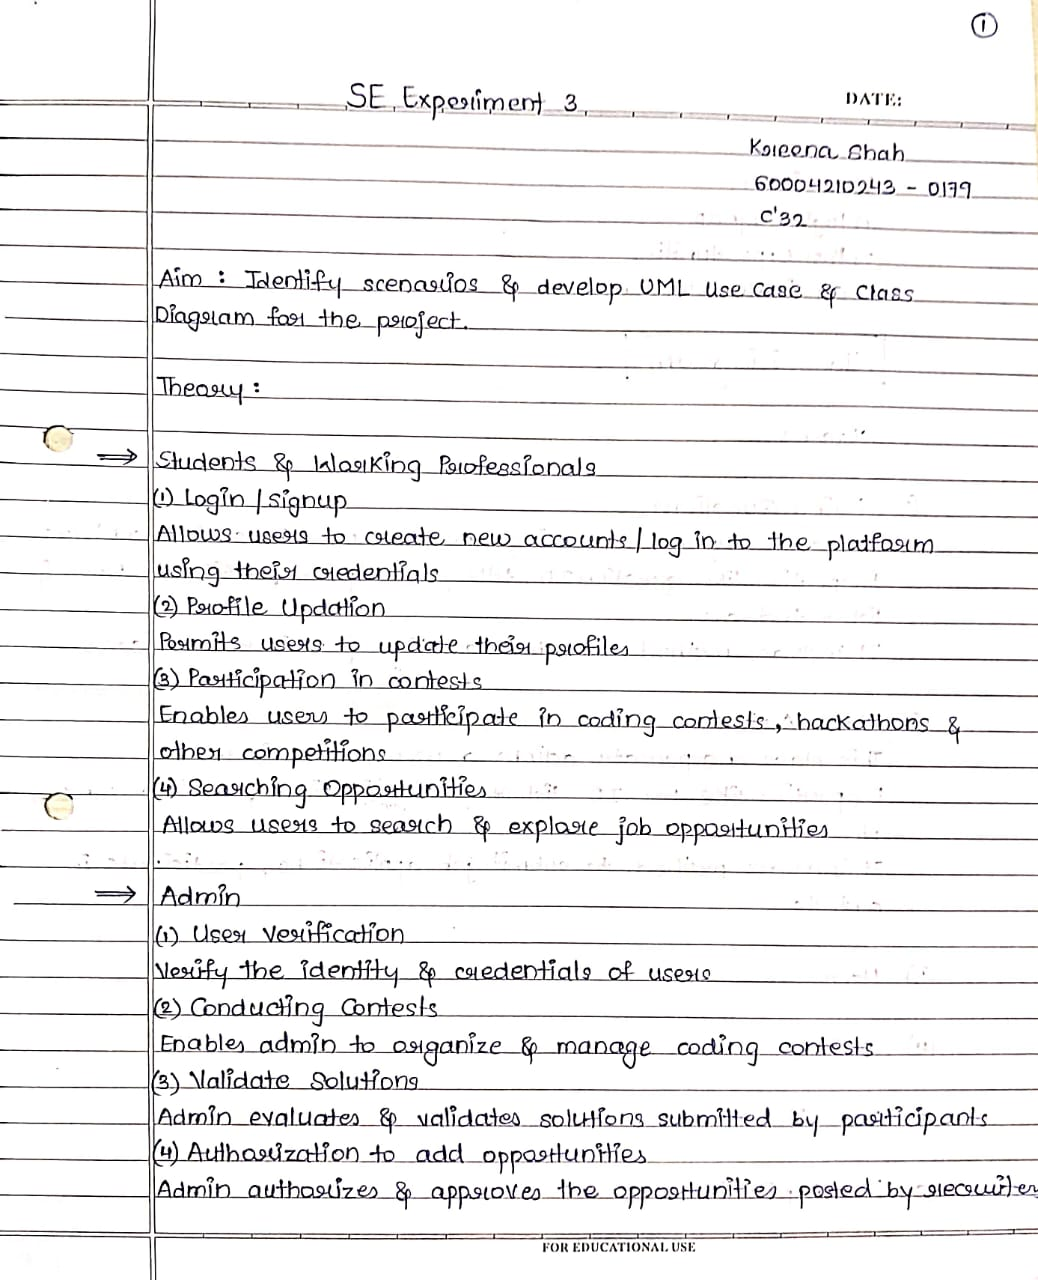 ①
SE Experiment 3
DATE:
Kreena Shah
60004210243 - 0179
C'32
Aim : Identify scenarios & develop UML Use Case & Class
Diagram for the project.
Theory :
⇒ Students & Working Professionals
(1) Login / signup
Allows users to create new accounts / log in to the platform
using their credentials
(2) Profile Updation
Permits users to update their profiles
(3) Participation in contests
Enables users to participate in coding contests, hackathons &
other competitions
(4) Searching Opportunities
Allows users to search & explore job opportunities
⇒ Admin
(1) User Verification
Verify the identity & credentials of users
(2) Conducting Contests
Enables admin to organize & manage coding contests
(3) Validate Solutions
Admin evaluates & validates solutions submitted by participants
(4) Authorization to add opportunities
Admin authorizes & approves the opportunities posted by recruiter
FOR EDUCATIONAL USE